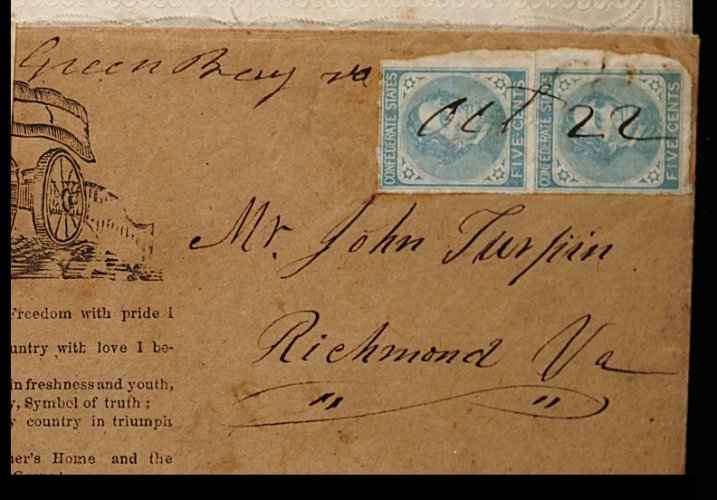 Green Bay va
CONFEDERATE STATES
FIVE CENTS
CONFEDERATE STATES
FIVE CENTS
Oct 22
Mr. John Turpin
Richmond Va
Freedom with pride I
untry with love I be-
in freshness and youth,
y, Symbol of truth ;
y country in triumph
er's Home and the